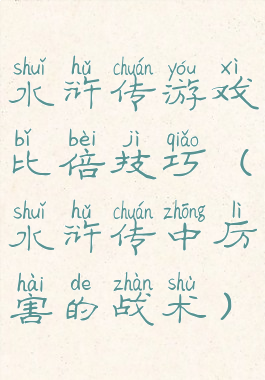 shuǐ hǔ chuán yóu xì
水浒传游戏
bǐ bèi jì qiǎo
比倍技巧（
shuǐ hǔ chuán zhōng lì
水浒传中厉
hài de zhàn shù
害的战术）